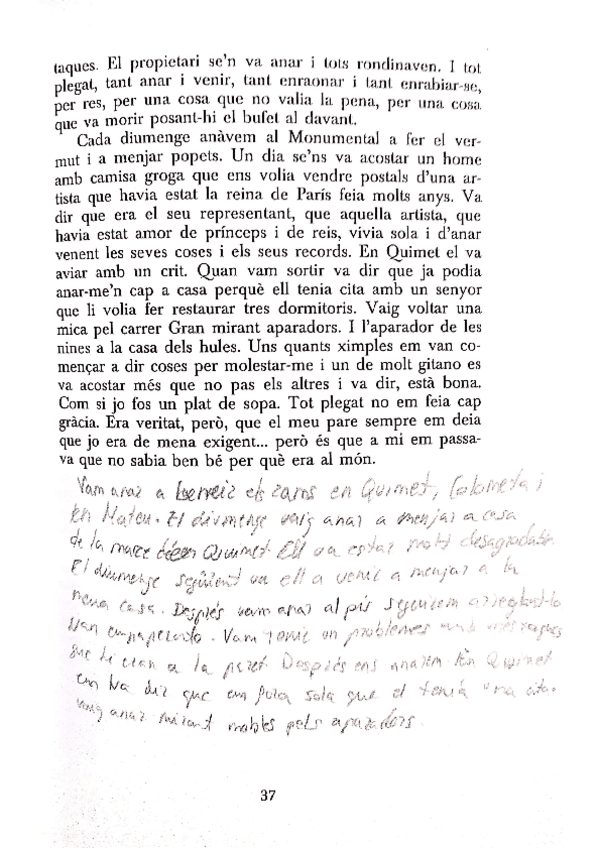 taques. El propietari se'n va anar i tots rondinaven. I tot
plegat, tant anar i venir, tant enraonar i tant enrabiar-se,
per res, per una cosa que no valia la pena, per una cosa
que va morir posant-hi el bufet al davant.
Cada diumenge anàvem al Monumental a fer el ver-
mut i a menjar popets. Un dia se'ns va acostar un home
amb camisa groga que ens volia vendre postals d'una ar-
tista que havia estat la reina de París feia molts anys. Va
dir que era el seu representant, que aquella artista, que
havia estat amor de prínceps i de reis, vivia sola i d'anar
venent les seves coses i els seus records. En Quimet el va
aviar amb un crit. Quan vam sortir va dir que ja podia
anar-me'n cap a casa perquè ell tenia cita amb un senyor
que li volia fer restaurar tres dormitoris. Vaig voltar una
mica pel carrer Gran mirant aparadors. I l'aparador de les
nines a la casa dels hules. Uns quants ximples em van co-
mençar a dir coses per molestar-me i un de molt gitano es
va acostar més que no pas els altres i va dir, està bona.
Com si jo fos un plat de sopa. Tot plegat no em feia cap
gràcia. Era veritat, però, que el meu pare sempre em deia
que jo era de mena exigent... però és que a mi em passa-
va que no sabia ben bé per què era al món.
Vam anar a els en Quimet, Colometa i
En Mateu. El diumenge vaig anar a menjar a casa
de la mare d'en Quimet. Ell va estar molt desagradable
El diumenge següent va ell a venir a menjar a la
mena casa. Després vam anar al pis seguiem arreglant-lo
van empaperando. Vam tenir un problemes amb
que hi eran a la paret. Després ens anarem. En Quimet
em va dir que em fora sola que el tenia una cita.
vaig anar mirant mobles pels aparadors.
37